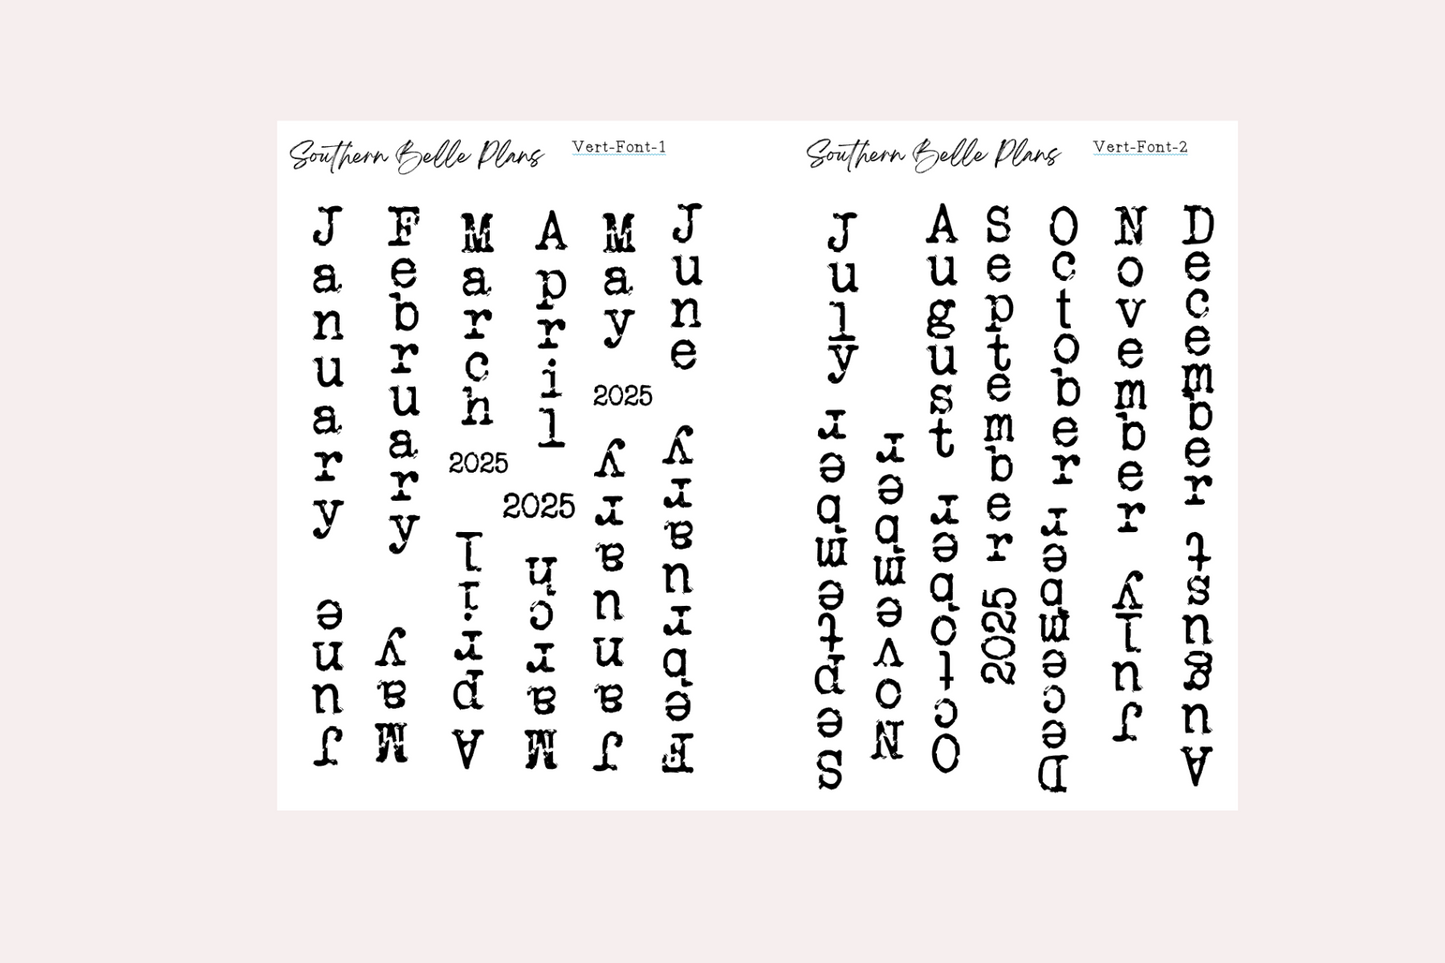 Southern Belle Plans
Vert-Font-1
January
February
March
April
May
June
2025
2025
2025
June
May
April
March
January
February
Southern Belle Plans
Vert-Font-2
July
August
September
October
November
December
2025
September
November
October
December
July
August